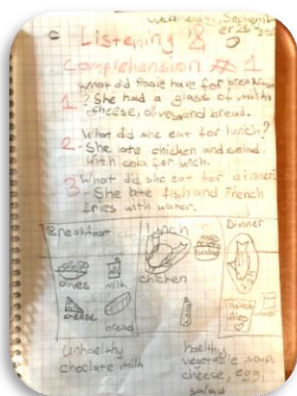 Wednesday, Septemb
er 26
Listening &
Comprehension # 1
What did have for breakfast
1 ? She had a glass of milk
cheese, olives and bread.
What did she eat for lunch?
2 - She ate chicken and salad
with cola for
What did she eat for dinner
3 - She ate fish and French
fries with water.
Breakfast
Lunch
Dinner
olives
milk
cheese
bread
chicken
fries
water
Unhealthy
choclate milk
healthy
vegetable soup,
cheese, egg,
salad